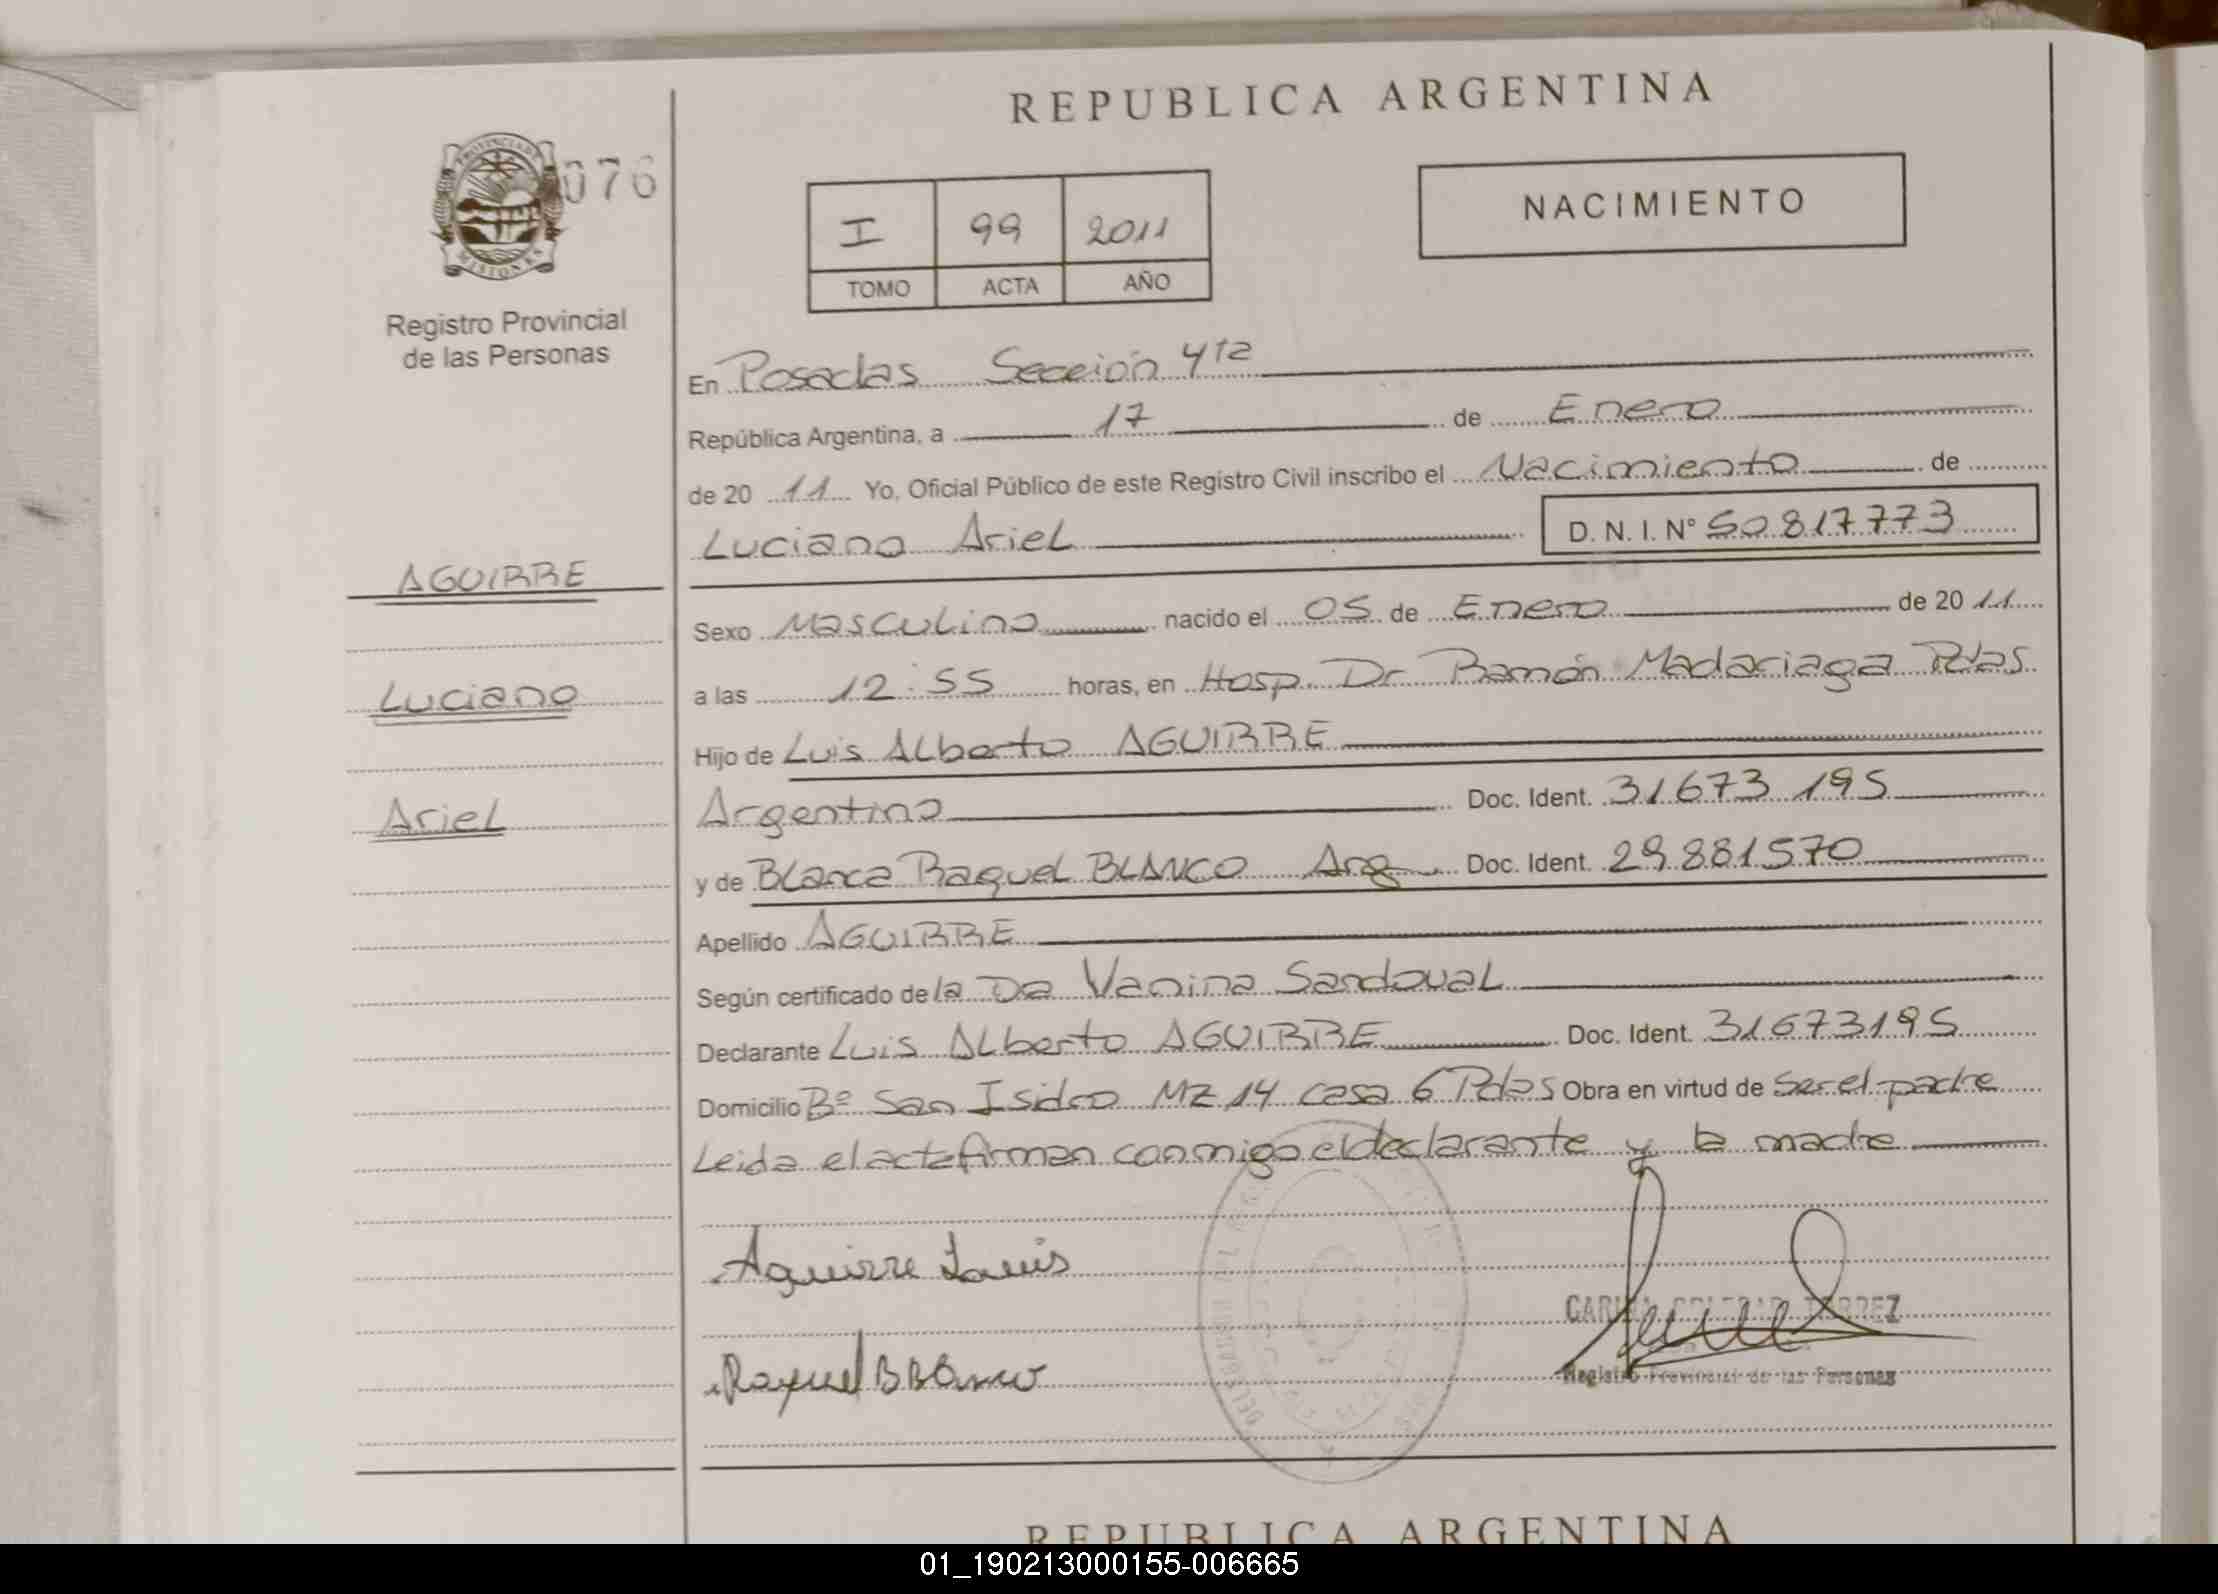 REPUBLICA ARGENTINA
PROVINCIA DE
MISIONES
076
Registro Provincial
de las Personas
I 99 2011
TOMO ACTA AÑO
NACIMIENTO
En Posadas Sección 4ta
República Argentina, a 17 de Enero
de 20 11 Yo, Oficial Público de este Registro Civil inscribo el Nacimiento de
Luciano Ariel D. N. I. Nº 50.817.773
AGUIRRE
Sexo Masculino nacido el 05 de Enero de 20 11
Luciano
a las 12:55 horas, en Hosp. Dr Ramón Madariaga Pdas.
Hijo de Luis Alberto AGUIRRE
Ariel
Argentino Doc. Ident. 31673 195
y de Blanca Raquel BLANCO Arg Doc. Ident. 29.881570
Apellido AGUIRRE
Según certificado de la Da Vanina Sandoval
Declarante Luis Alberto AGUIRRE Doc. Ident. 31673195
Domicilio Bº San Isidro MZ 14 casa 6 Pdas Obra en virtud de ser el padre
Leida el acta firman conmigo el declarante y la madre
Aguirre Luis
Raquel B Blanco
TORREZ
Registro Provincial de las Personas
REPUBLICA ARGENTINA
01_190213000155-006665